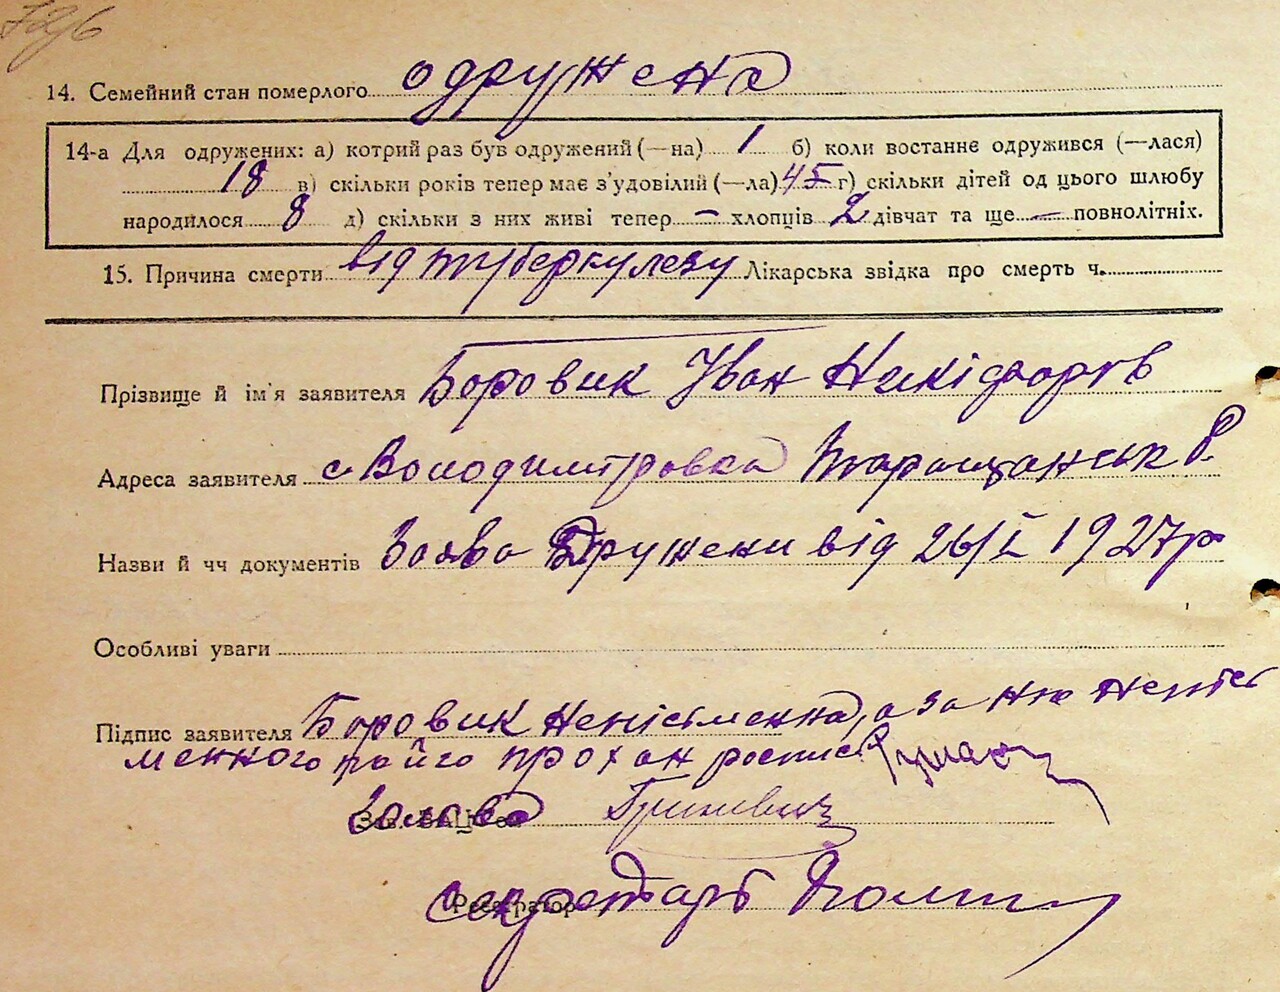 726
14. Семейний стан померлого одружена
14-а Для одружених: а) котрий раз був одружений (—на) 1 б) коли востаннє одружився (—лася)
18 в) скільки років тепер має з'удовілий (—ла) 45 г) скільки дітей од цього шлюбу
народилося 8 д) скільки з них живі тепер — хлопців 2 дівчат та ще — повнолітніх.
15. Причина смерти від туберкулезу Лікарська звідка про смерть ч.
Прізвище й ім'я заявителя Боровик Іван Никіфоров
Адреса заявителя с Володимировка Таращанськ Р.
Назви й чч документів Заява Дружени від 26/I 1927р
Особливі уваги
Підпис заявителя Боровик неписьменна, а за ню непись
менного його прохан роспис
Голова
Секретарь
Реєстратор